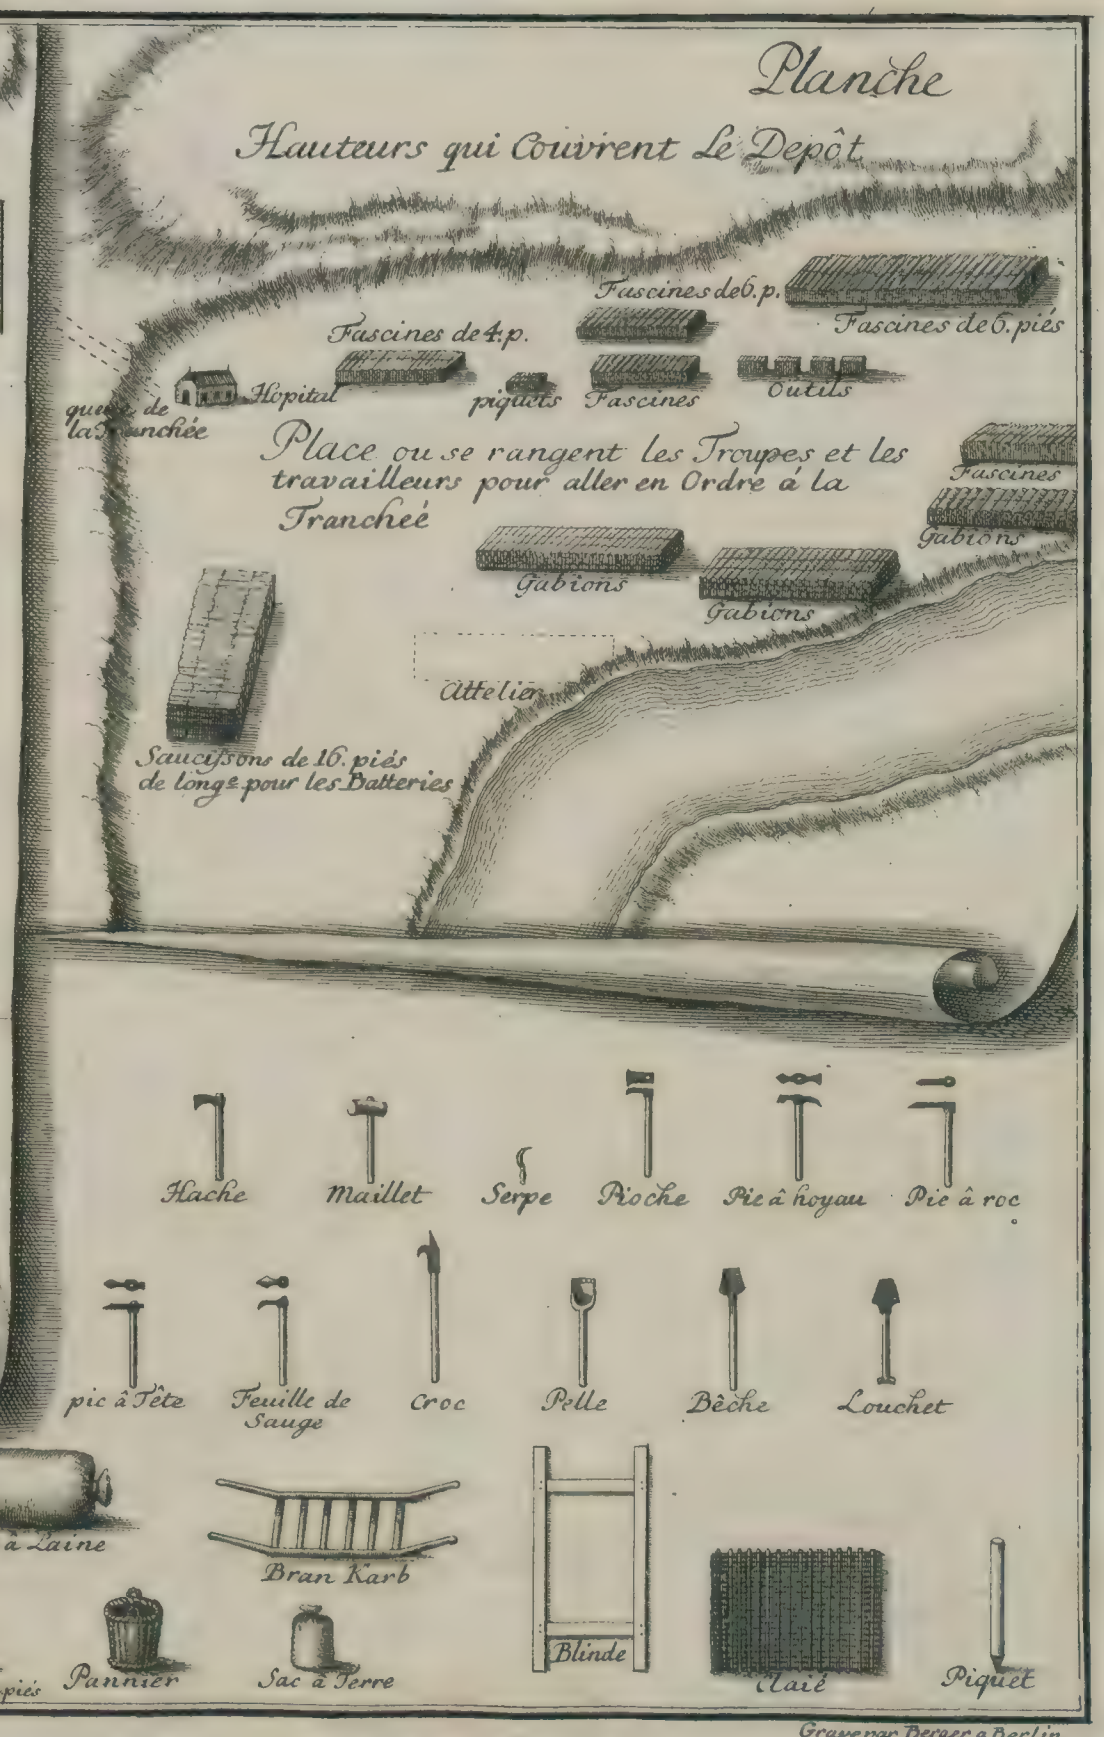 Planche
Hauteurs qui Couvrent Le Depôt
Fascines de 6. p.
Fascines de 6. piés
Fascines de 4. p.
Hopital
piquets
Fascines
Outils
queüe de
la Tranchée
Place ou se rangent les Troupes et les
travailleurs pour aller en Ordre á la
Trancheé
Fascines
Gabions
Gabions
Gabions
Attelier
Saucissons de 16. piés
de longe. pour les Batteries
Hache
Maillet
Serpe
Pioche
Pic â hoyau
Pic â roc
pic â Tête
Feuille de
Sauge
Croc
Pelle
Bêche
Louchet
â Laine
Bran Karb
Blinde
Claié
Piquet
piés
Pannier
Sac â Terre
Gravé par Berger a Berlin